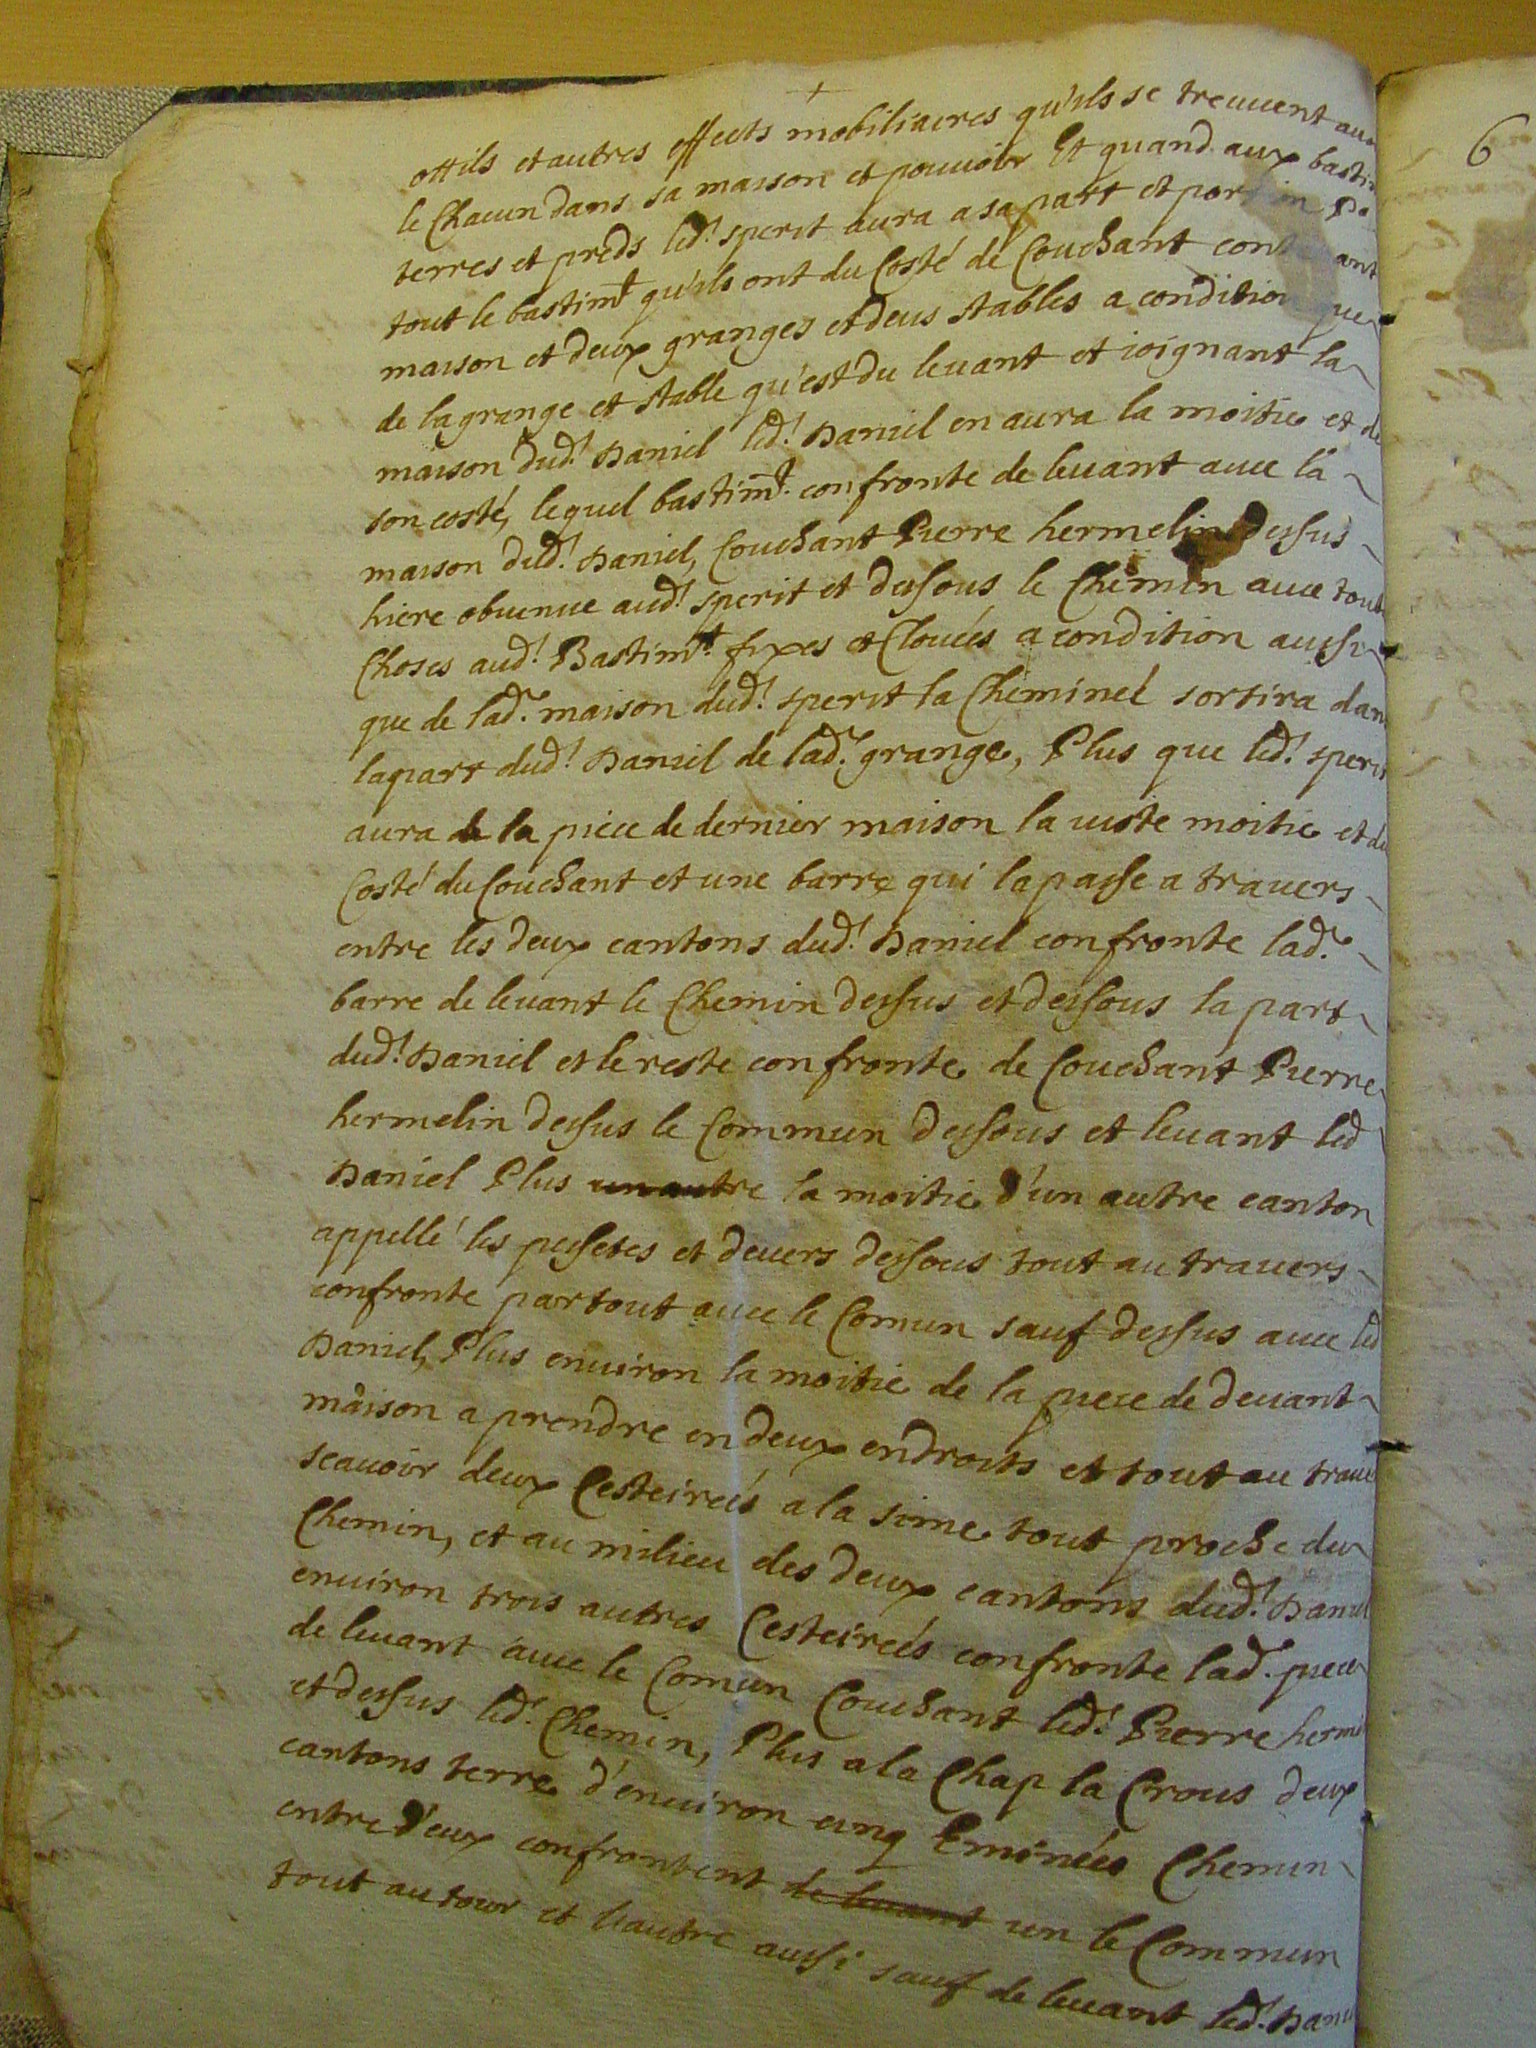 ottils et autres effects mobiliaires qu'ils se treuuent au
le Chacun dans sa maison et pouuoir Et quand aux basti
terres et preds led.t sperit aura a sa part et portion
tout le bastim.t qu'ils ont du Costé de Couchant contenant
maison et deux granges et deus stables a condition que
de la grange et stable qu'est du leuant et ioignant la
maison dud.t Daniel led.t Daniel en aura la moitie et de
son costé, lequel bastim.t confronte de leuant auec la
maison dud.t Daniel, Couchant Pierre hermelin dessus
hiere obuenue aud.t sperit et dessous le Chemin auec tout
Choses aud.t Bastim.t fixes et Clouées a condition aussi
que de lad.e maison dud.t sperit la Cheminée sortira dan
la part dud.t Daniel de lad.e grange, Plus que led.t sperit
aura de la piece de dernier maison la iuste moitie et du
Costé du Couchant et une barre qui la passe a trauers
entre les deux cantons dud.t Daniel confronte lad.e
barre de leuant le Chemin dessus et dessous la part
dud.t Daniel et le reste confronte de Couchant Pierre
hermelin dessus le Commun dessous et leuant led
Daniel Plus un autre la moitie d'un autre canton
appellé les pessetes et deuers dessous tout au trauers
confronte partout auec le Comun sauf dessus auec led
Daniel, Plus enuiron la moitie de la piece de deuant
maison a prendre en deux endroits et tout au traue
scauoir deux Cesteireés a la sime tout proche du
Chemin, et au milieu des deux cantons dud.t Daniel
enuiron trois autres Cesteireés confronte lad. piece
de leuant auec le Comun Couchant led.t Pierre herme
et dessus led.t Chemin, Plus a la Chap la Crous deux
cantons terre d'enuiron cinq Eminées Chemin
entre d'eux confrontent de leuant un le Commun
tout autour et l'autre aussi sauf de leuant led.t Dani
6